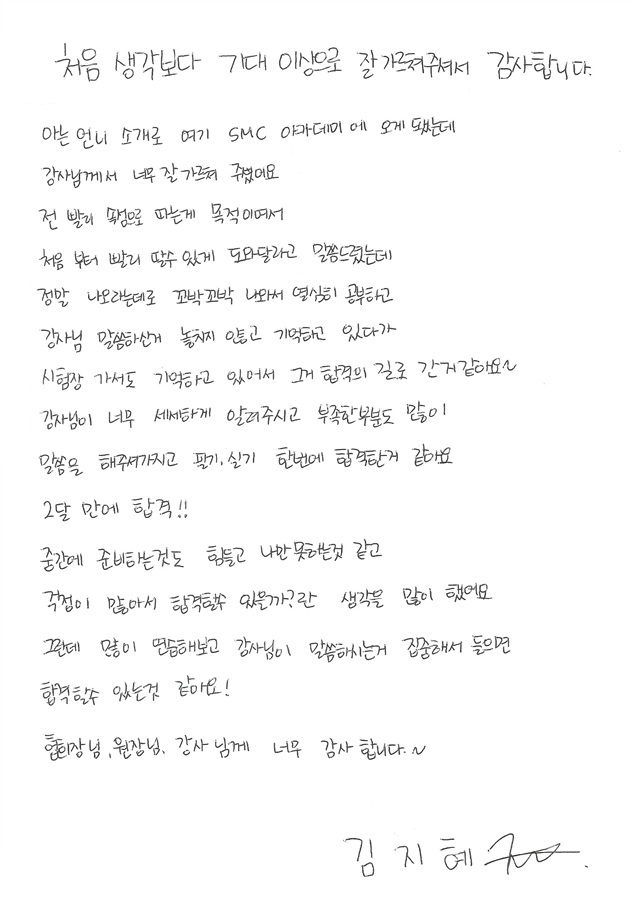 처음 생각보다 기대 이상으로 잘 가르쳐주셔서 감사합니다.
아는 언니 소개로 여기 SMC 아카데미에 오게 됐는데
강사님께서 너무 잘 가르쳐 주셨어요
전 빨리 속성으로 따는게 목적이여서
처음 부터 빨리 딸수 있게 도와달라고 말씀드렸는데
정말 나오라는데로 꼬박꼬박 나와서 열심히 공부하고
강사님 말씀하신거 놓치지 안흫고 기억하고 있다가
시험장 가서도 기억하고 있어서 그거 합격의 길로 간거같아요~
강사님이 너무 세세하게 알려주시고 부족한부분도 많이
말씀을 해주셔가지고 필기, 실기 한번에 합격한거 같아요
2달 만에 합격!!
중간에 준비하는것도 힘들고 나만못하는것 같고
걱정이 많아서 합격할수 있을까?란 생각을 많이 했어요
그런데 많이 연습해보고 강사님이 말씀하시는거 집중해서 들으면
합격할수 있는것 같아요!
협회장님, 원장님, 강사님께 너무 감사합니다.~
김지혜